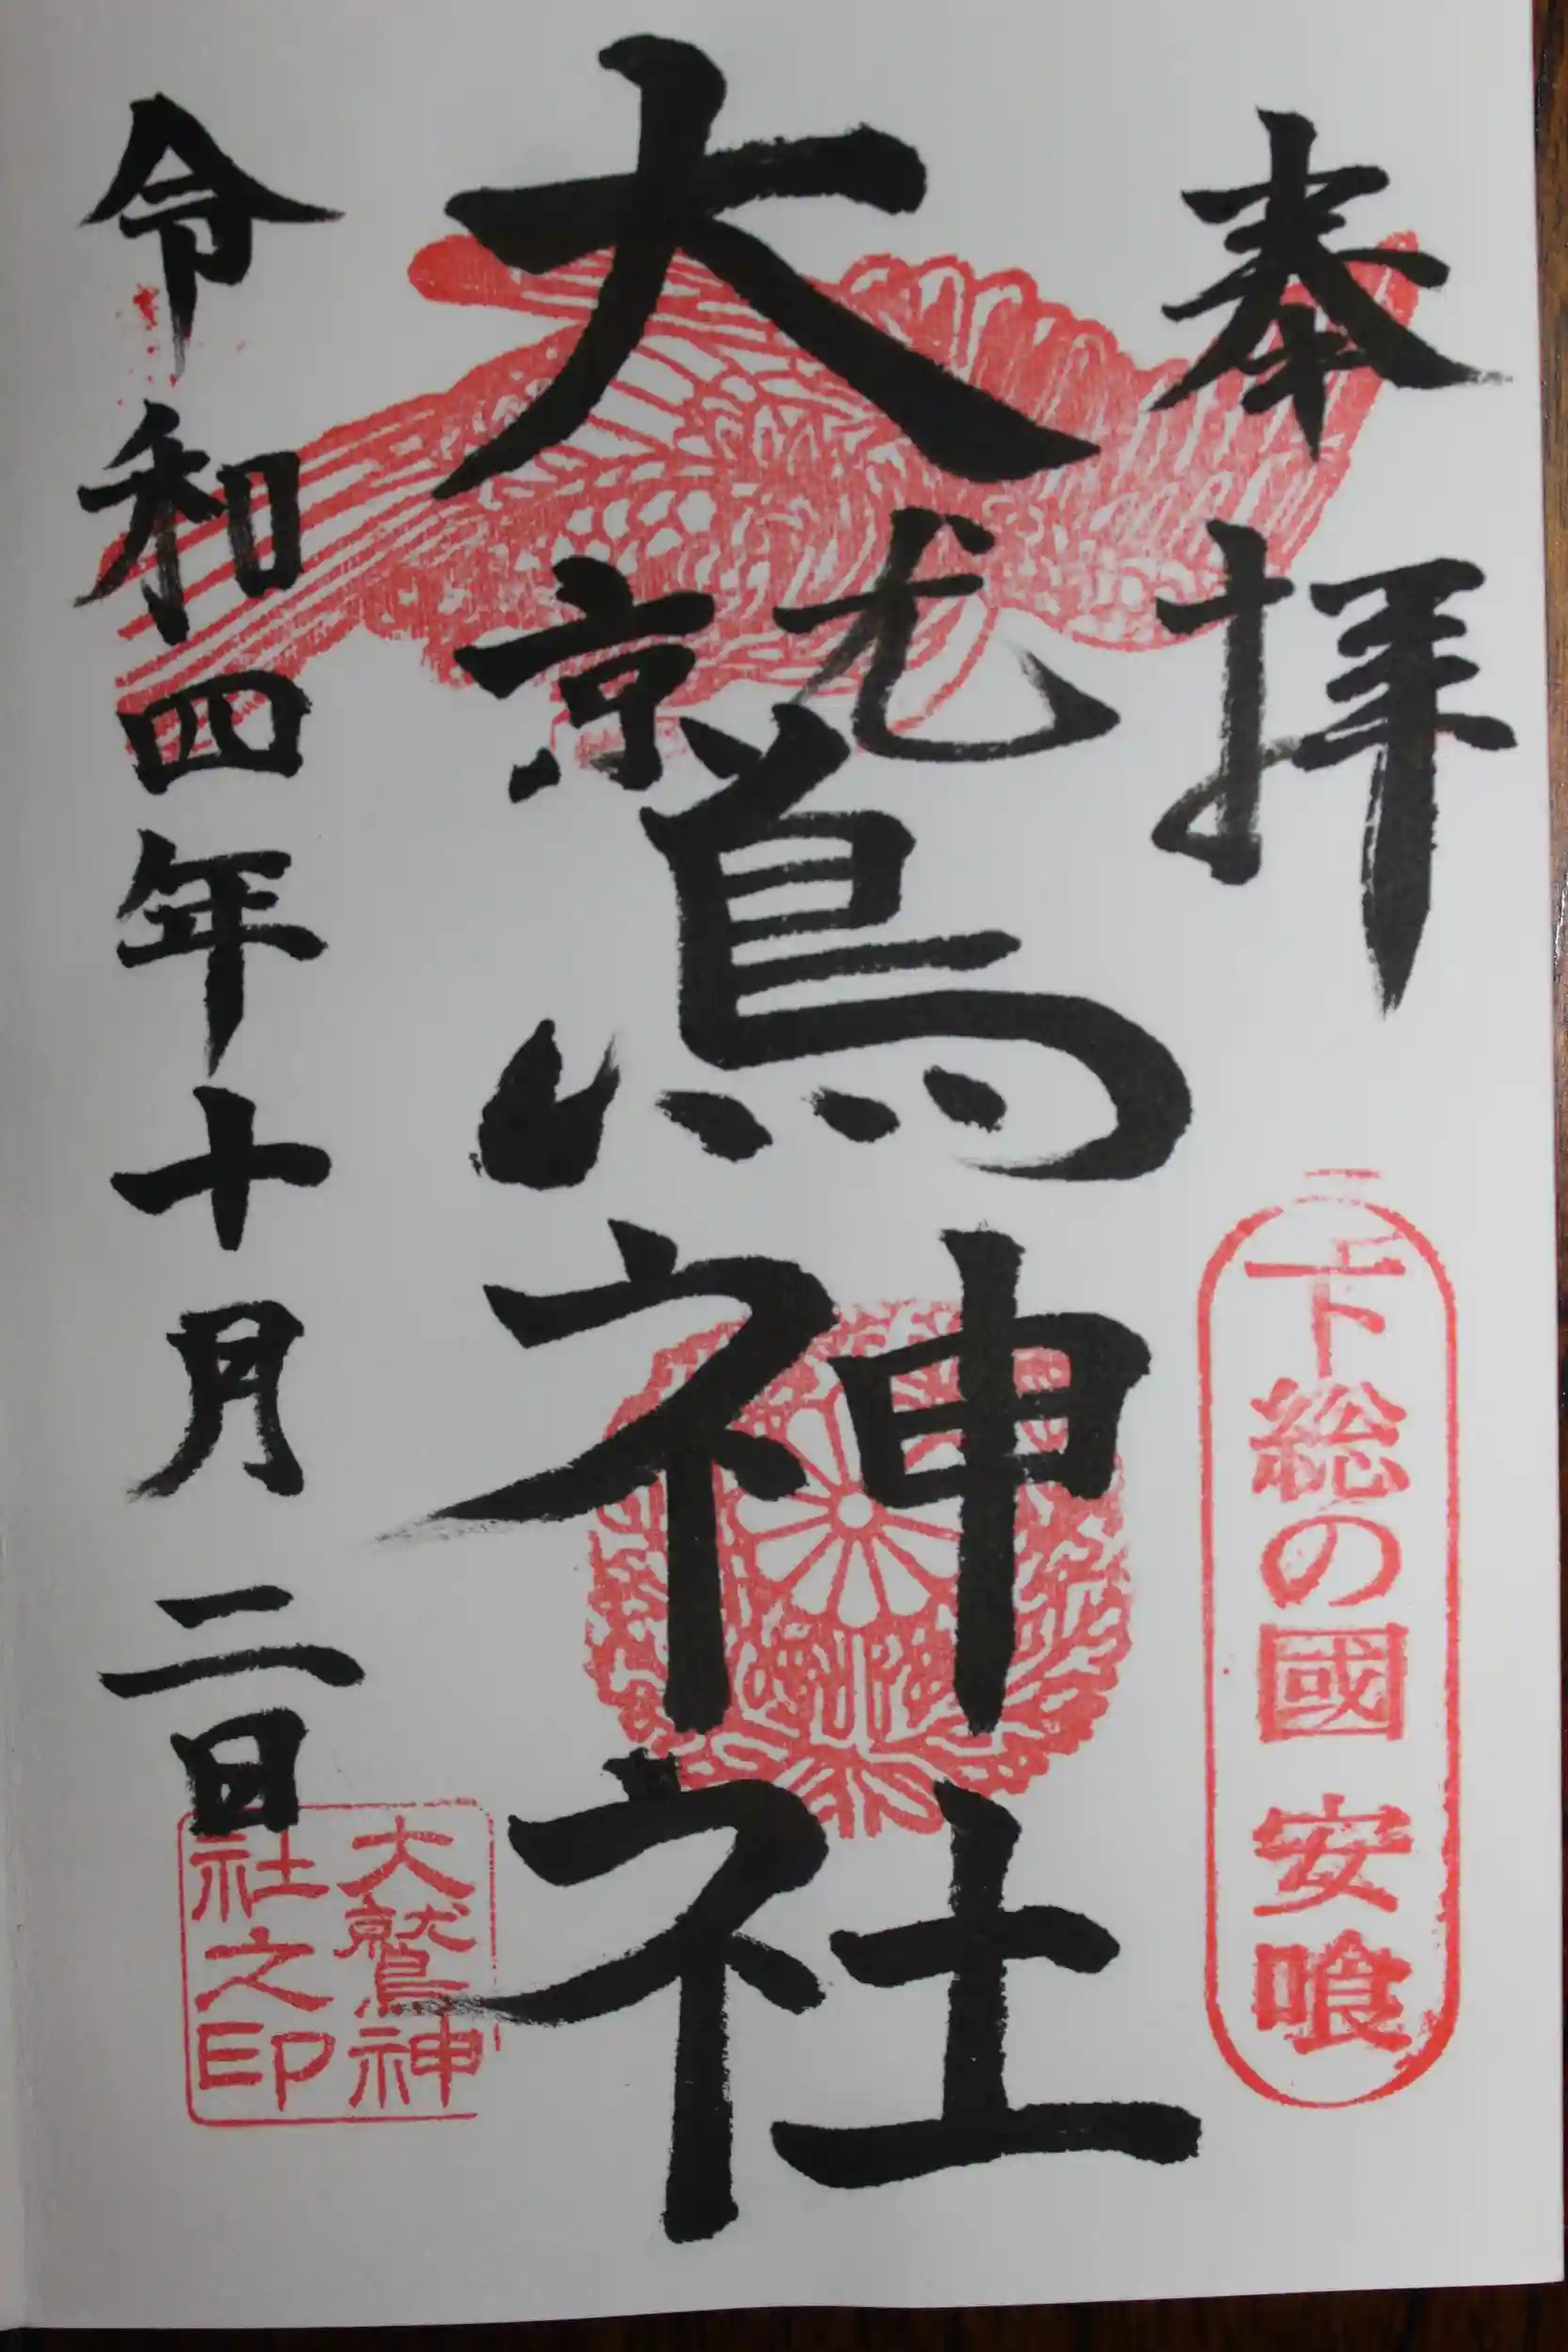 奉拝
下総の國 安喰
大鷲神社
令和四年十月二日
大鷲神
社之印